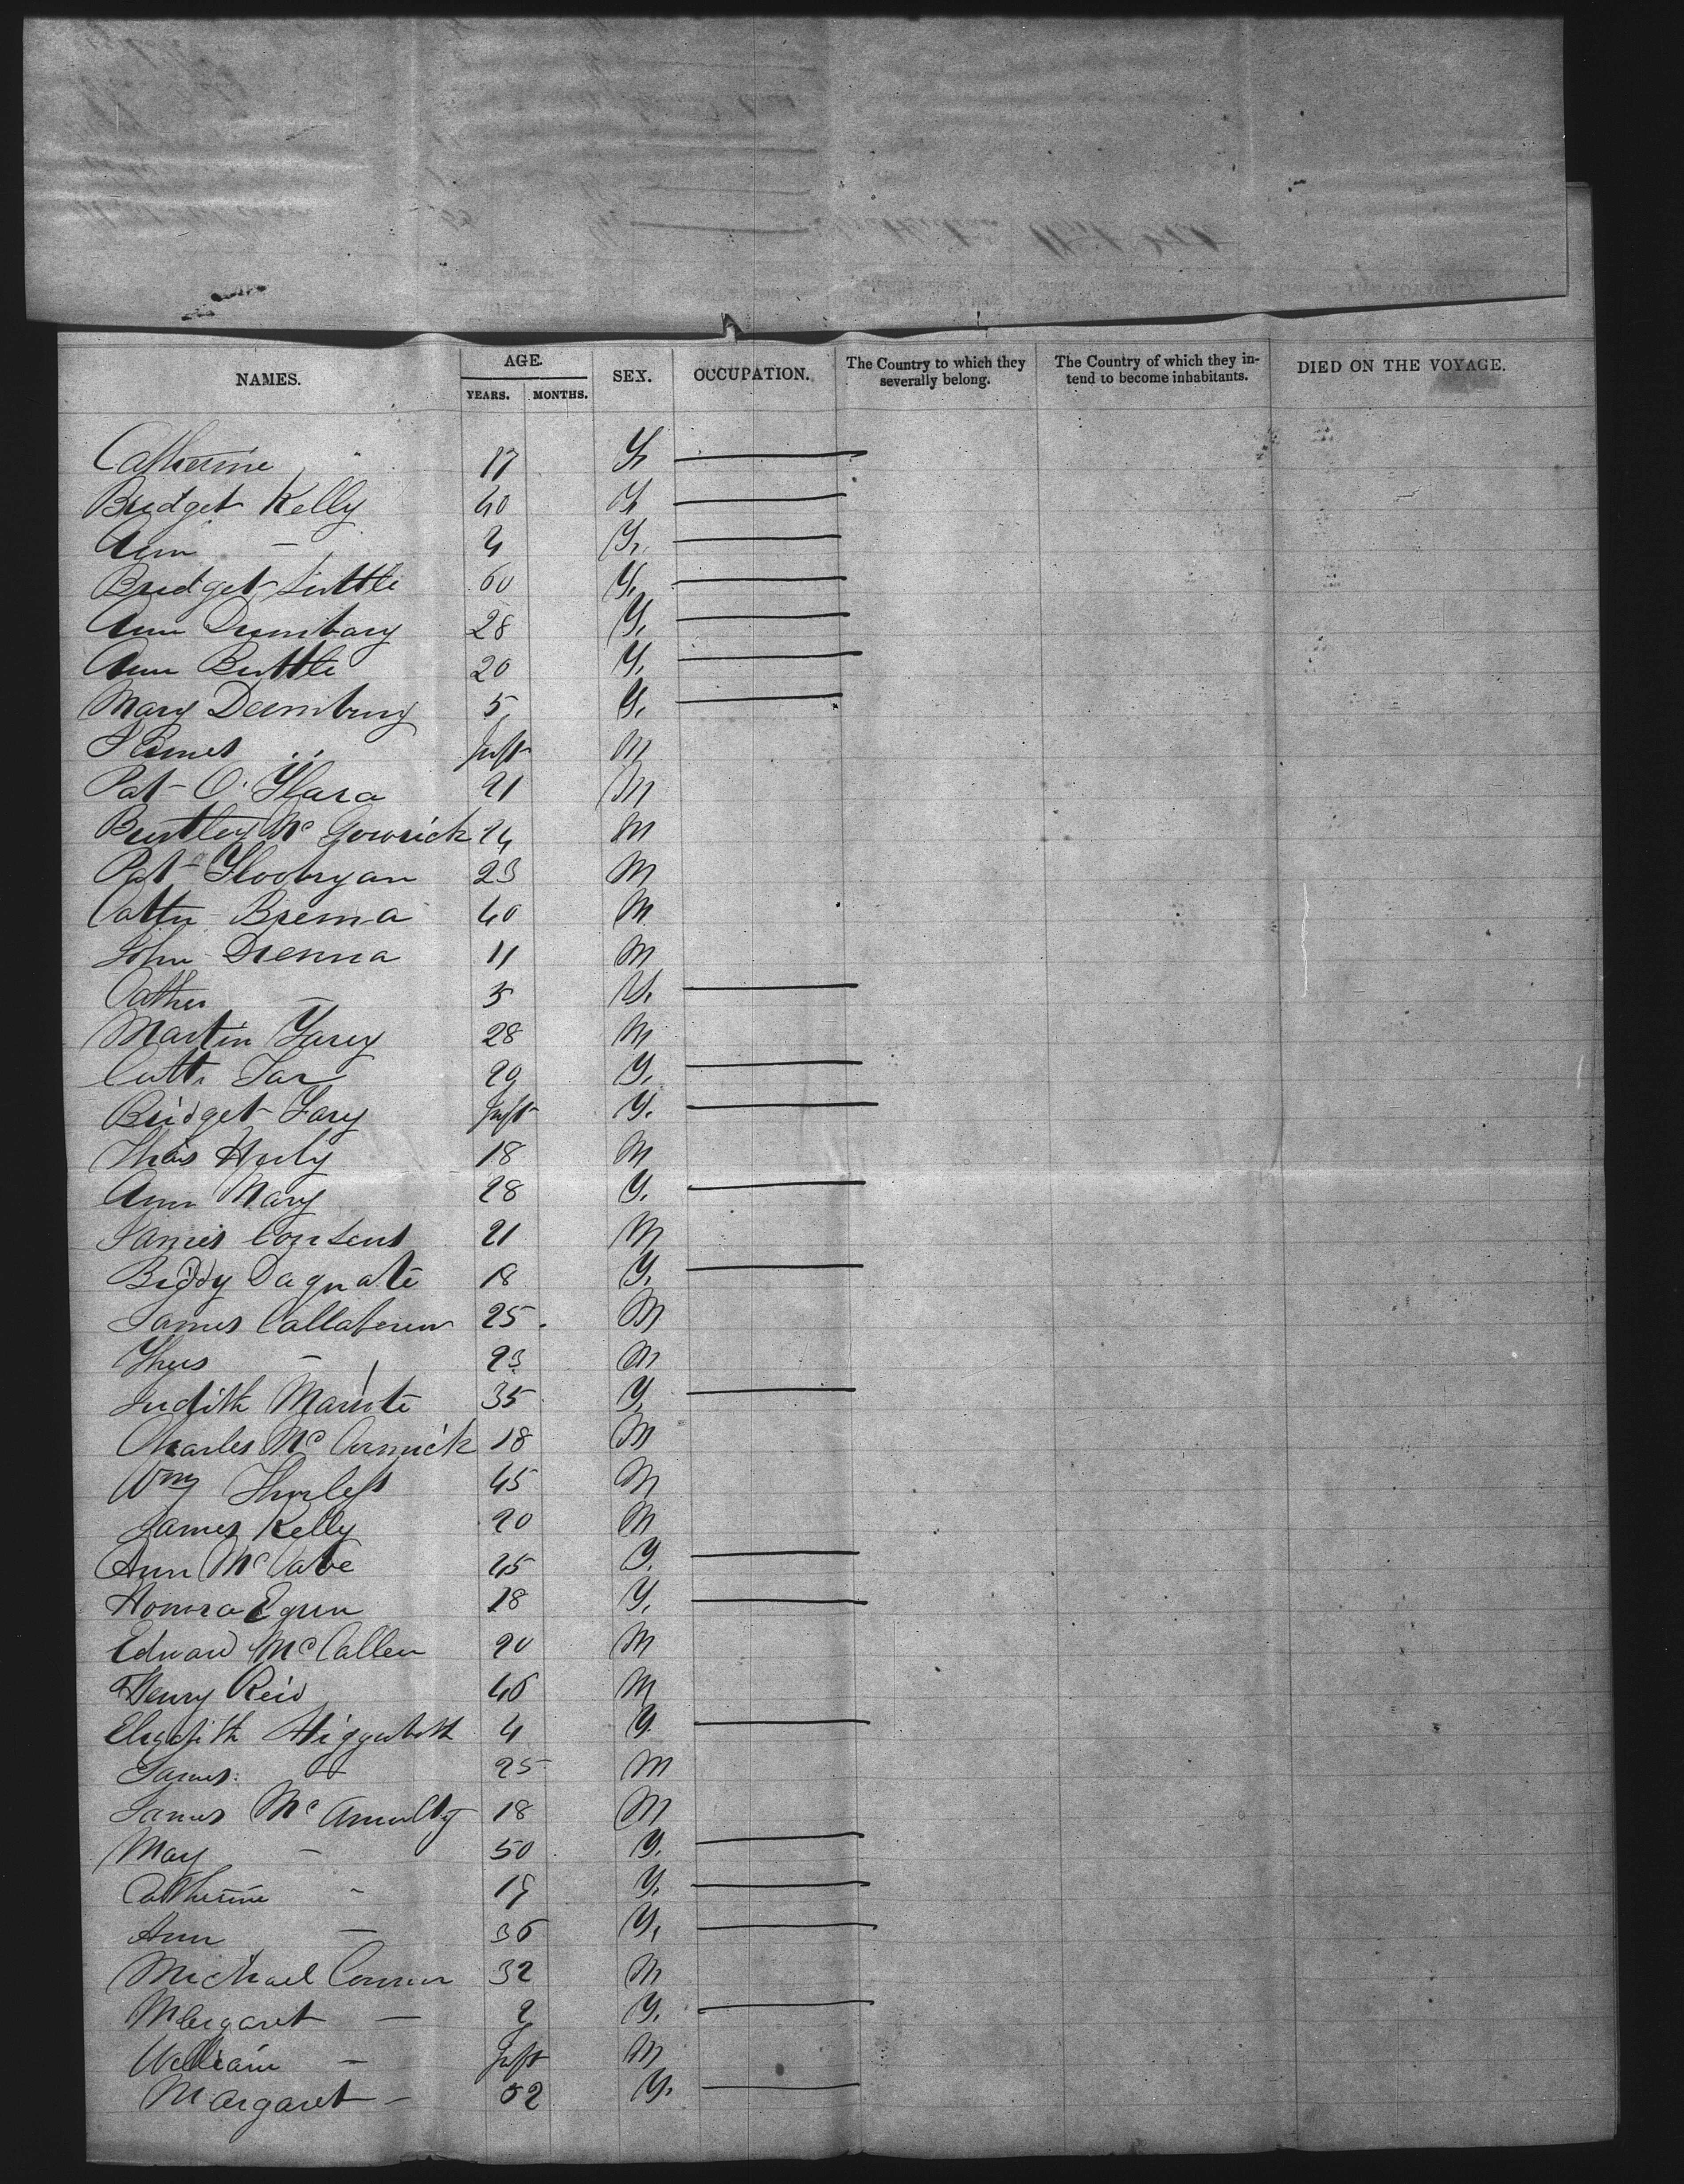 NAMES. AGE. YEARS. MONTHS. SEX. OCCUPATION. The Country to which they severally belong. The Country of which they intend to become inhabitants. DIED ON THE VOYAGE.
Catherine " 17 F
Bridget Kelly 40 F
Ann — 4 F.
Bridget Tuttle 60 F.
Ann 28 F.
Ann Buttle 20 F.
Mary 5 F.
James " Inft M
Pat O'Hara 21 M
Mc 24 M
Pat 23 M
40 M
John Drenna 11 M
Cather — 3 F.
Martin Fary 28 M
Cath. 29 F.
Bridget Fary Inft F.
Thos Healy 18 M
Ann Mary 28 F.
James 21 M
Biddy 18 F.
James 25. M
Thos — 23 M
Judith 35 F.
Charles McCormick 18 M
Wm 45 M
James Kelly 20 M
Ann McCabe 25 F.
Honora Egan 18 F.
Edward McCallen 20 M
Henry Reid 46 M
4 F.
James — 25 M
James McAnulty 18 M
May — 50 F.
Catherine — 19 F.
Ann — 36 F.
Michael Connor 32 M
Margaret — 2 F.
William — Inft M
Margaret — 52 F.